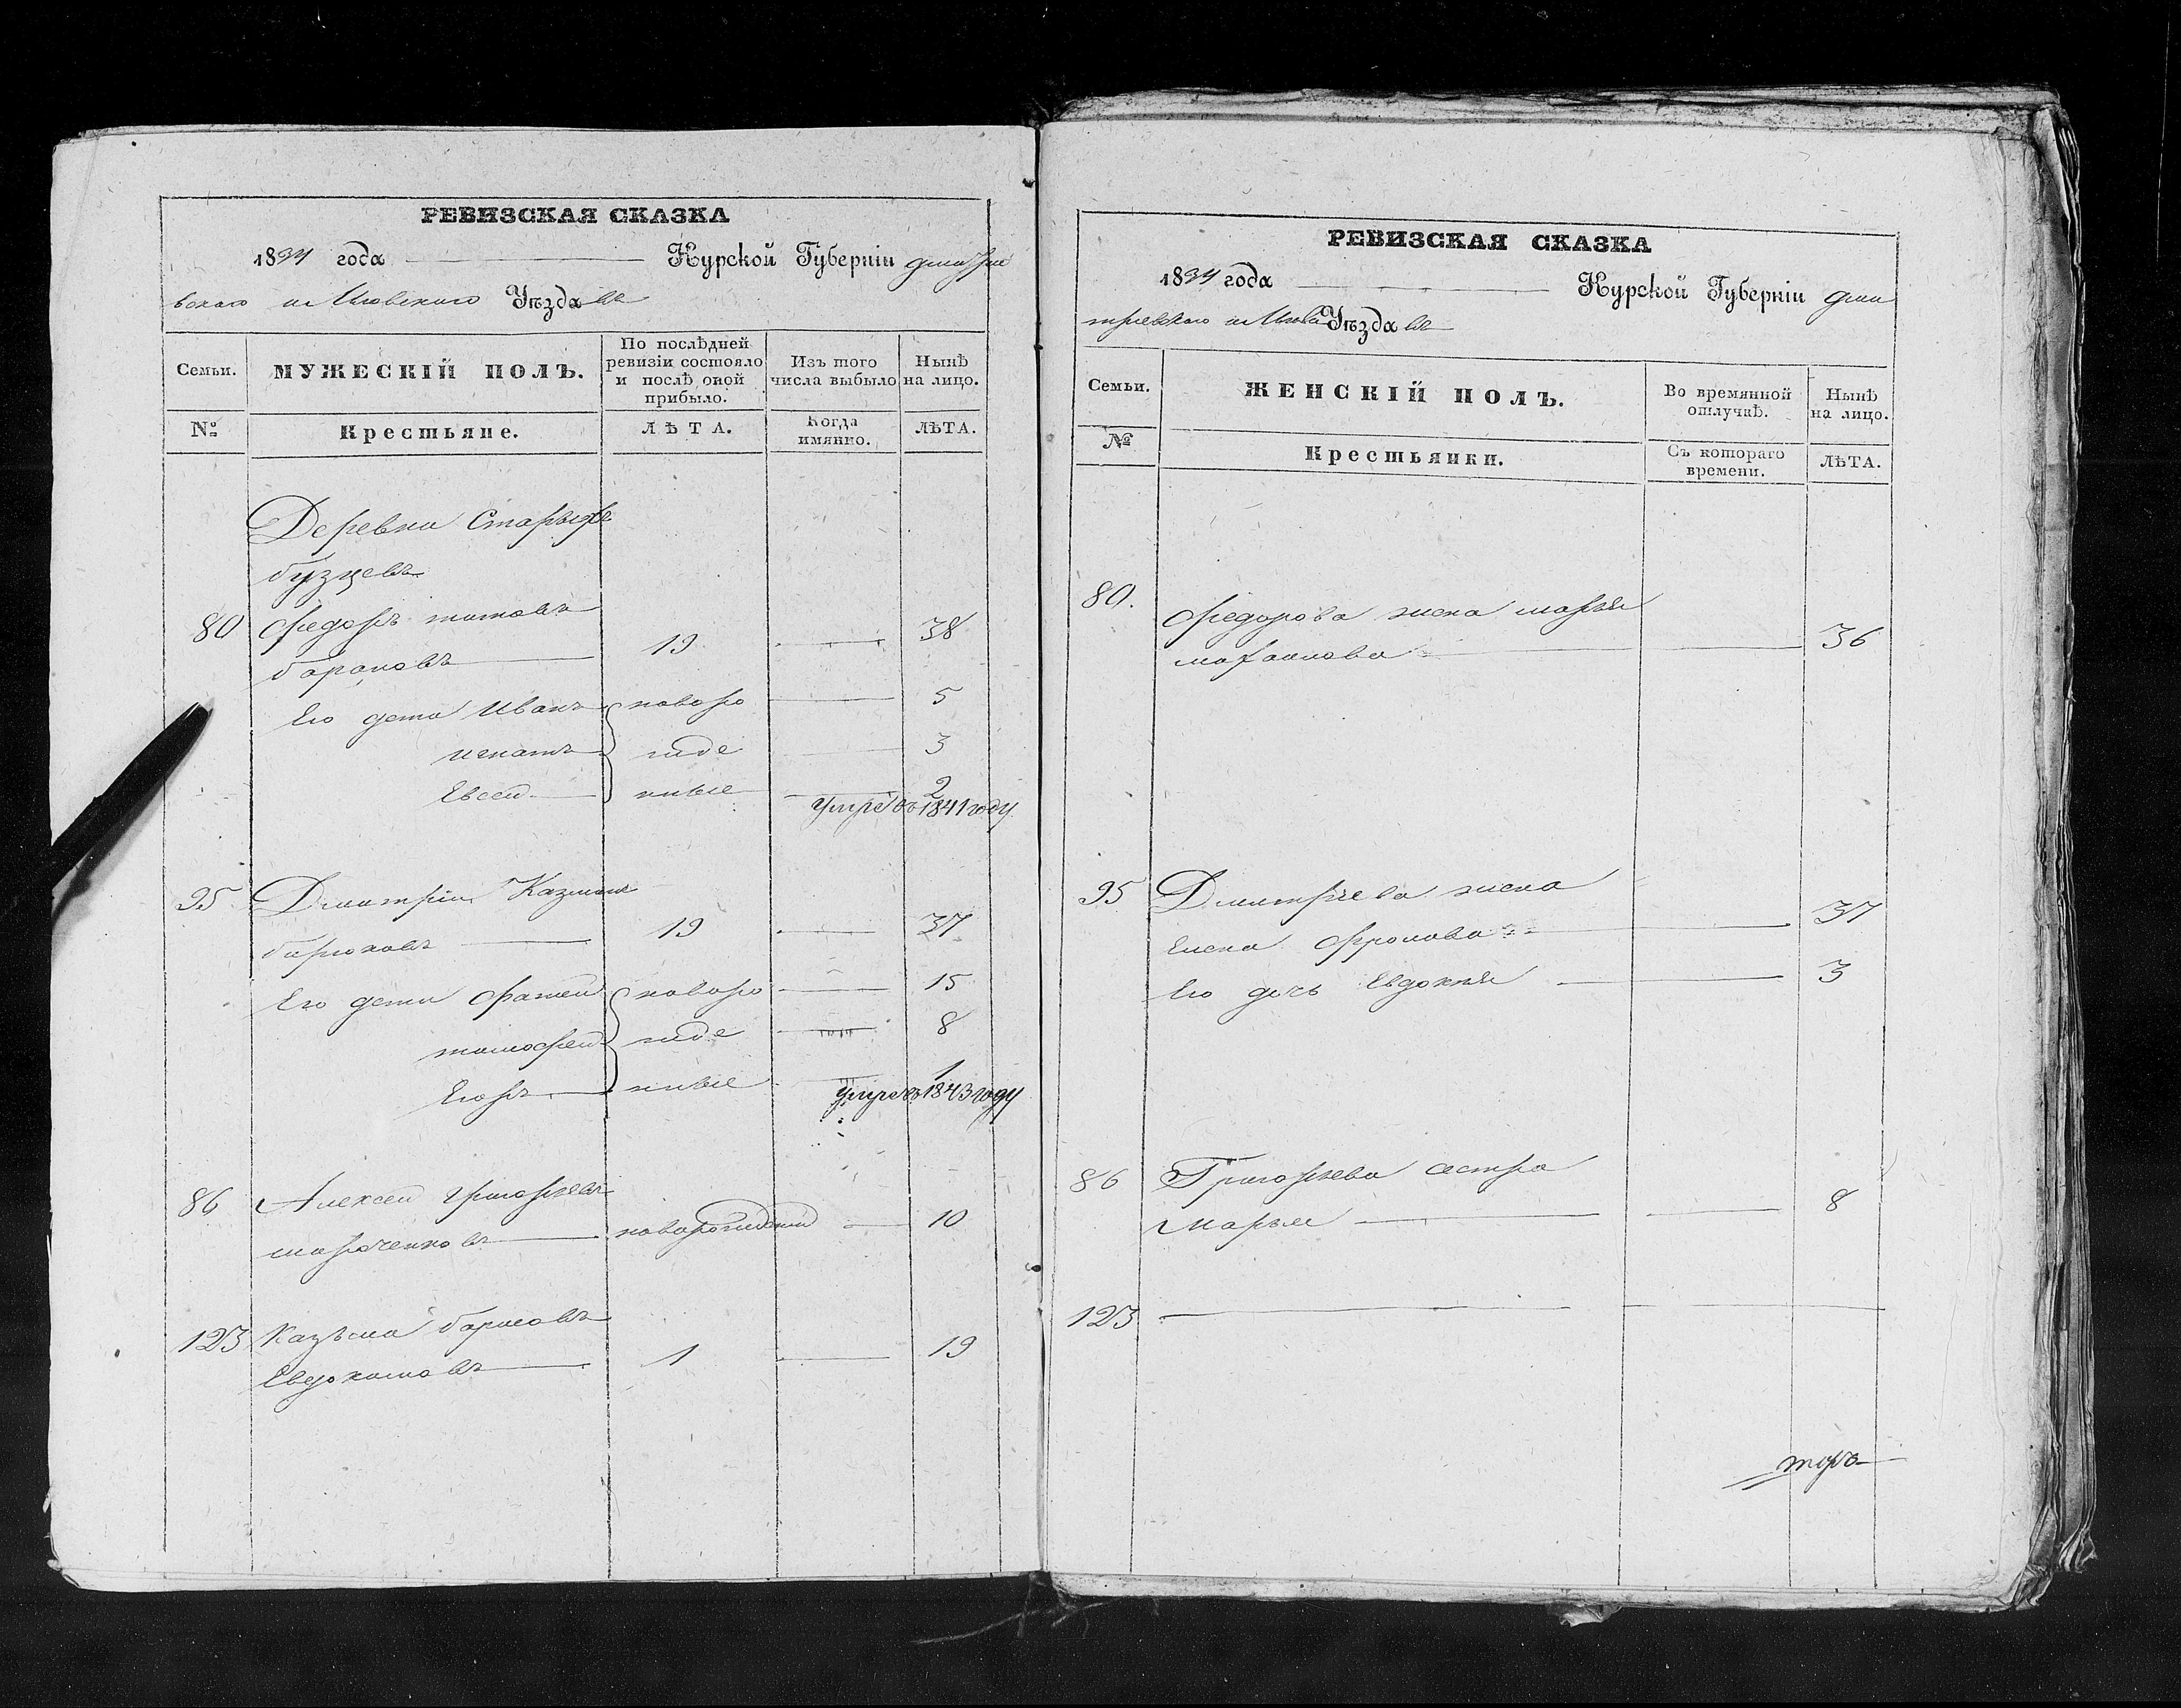 РЕВИЗСКАЯ СКАЗКА
1834 года Курской Губерніи Дмитріе
вскаго и Льговскаго Уѣзда въ
Семьи.
МУЖЕСКІЙ ПОЛЪ.
По послѣдней
ревизіи состояло
и послѣ оной
прибыло.
Изъ того
числа выбыло
Нынѣ
на лицо.
№
Крестьяне.
ЛѢТА.
Когда
имянно.
ЛѢТА.
Деревни Старыхъ
бузцевъ
80 Федоръ титовъ
барановъ 19 38
Его дети Иванъ новоро 5
игнатъ жде 3
Евсей нные 2
Умре въ 1841 году
95 Дмитрій Казминъ
бирюковъ 19 37
Его дети Фатей новоро 15
тимофей жде 8
Егоръ нные 1
Умре въ 1843 году
86 Алексей григорьевъ
новорожденный 10
123 Казьма борисовъ
Евдокимовъ 1 19
РЕВИЗСКАЯ СКАЗКА
1834 года Курской Губерніи Дми
тріевскаго и Льгов Уѣзда въ
Семьи.
ЖЕНСКІЙ ПОЛЪ.
Во времянной
отлучкѣ.
Нынѣ
на лицо.
№
Крестьянки.
Съ котораго
времени.
ЛѢТА.
80. Федорова жена марья
36
95 Дмитріева жена
Елена Фролова 37
Его дочь Евдокія 3
86 Григорьева сестра
Марья 8
123